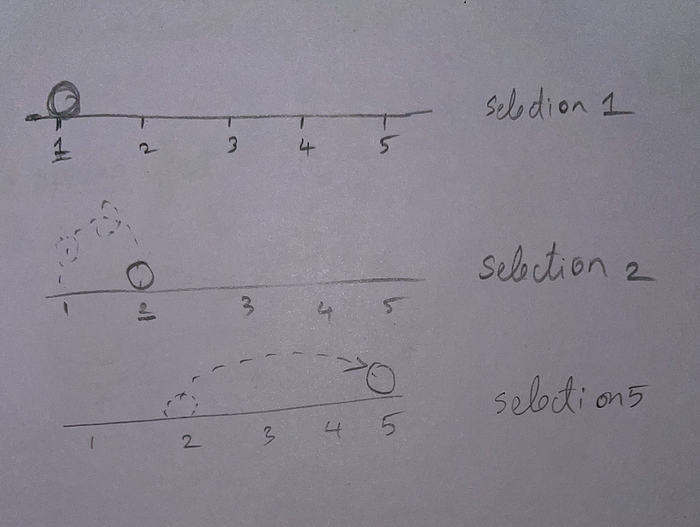 selection 1
1 2 3 4 5
selection 2
1 2 3 4 5
selection 5
1 2 3 4 5